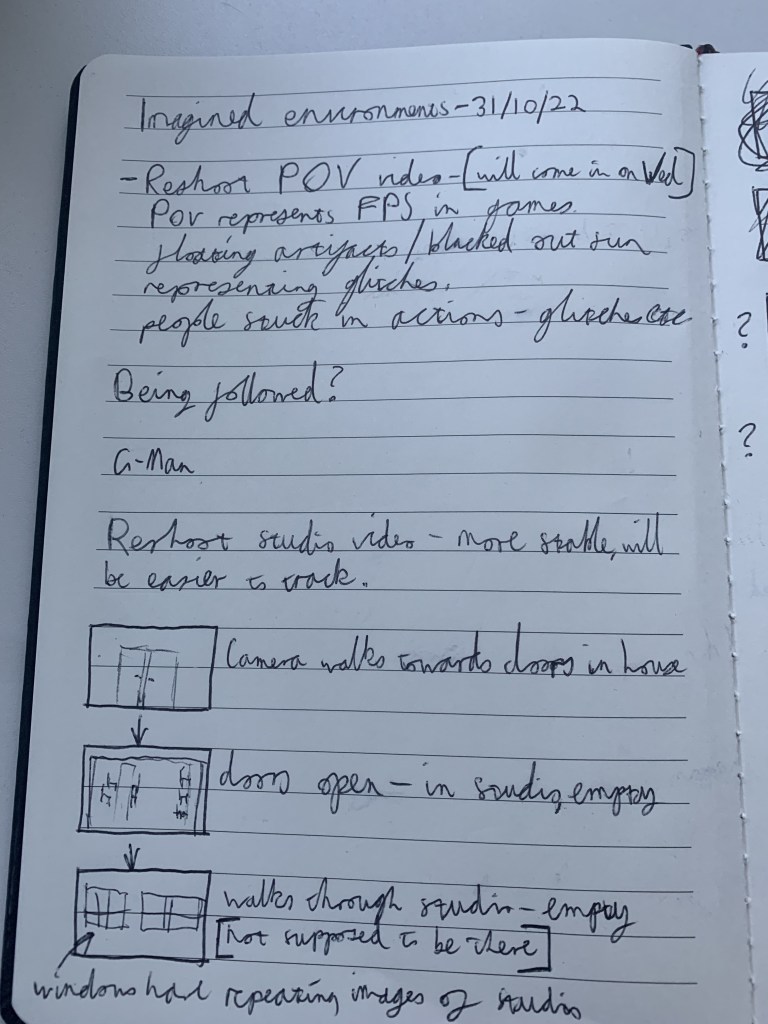 Imagined environments - 31/10/22
- Reshoot POV video - [will come in on Wed]
POV represents FPS in games.
floating artifacts / blacked out sun
representing glitches.
people stuck in actions - glitches etc
?
Being followed?
?
G-Man
Reshoot studio video - more stable, will
be easier to track.
Camera walks towards doors in house
doors open - in studio, empty
walks through studio - empty
[not supposed to be there]
windows had repeating images of studio